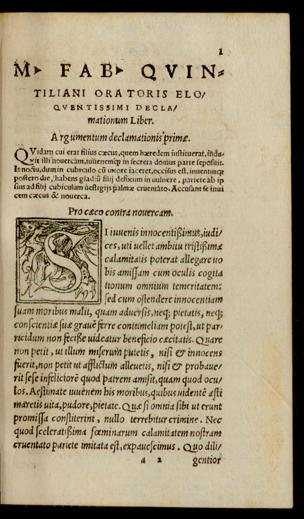 1
M▸ FAB▸ QVIN-
TILIANI ORATORIS ELO/
QVENTISSIMI DECLA/
mationum Liber.
Argumentum declamationis primæ.
QVidam cui erat filius cæcus, quem hæredem instituerat, ĩdu-
xit illi nouercam, iuuenemq̃ in secreta domus parte seposuit.
Is noctu, dum in cubiculo cũ uxore iaceret, occisus est. inuentusq̃
postero die, habens gladiũ filij defixum in uulnere, pariete ab ip
sius ad filij cubiculum uestigijs palmæ cruentato. Accusant se inui
cem cæcus & nouerca.
Pro cæco contra nouercam.
SI iuuenis innocentißimus, iudi/
ces, uti uellet ambitu tristißimæ
calamitatis poterat allegare uo
bis amissam cum oculis cogita
tionum omnium temeritatem:
sed cum ostendere innocentiam
suam moribus malit, quam aduersis, neq; pietatis, neq;
conscientiæ suæ graue ferre contumeliam potest, ut par-
ricidium non fecisse uideatur beneficio cæcitatis. Quare
non petit, ut illum miserum putetis, nisi & innocens
fuerit, non petit ut afflictum alleuetis, nisi & probaue/
rit sese infeliciorē quod patrem amisit, quam quod ocu/
los. Aestimate iuuenem his moribus, quibus uidentē æsti
maretis uita, pudore, pietate. Quæ si omnia sibi ut erunt
promissa constiterint, nullo terrebitur crimine. Nec
quod sceleratißima fœminarum calamitatem nostram
cruentato pariete imitata est, expauescimus. Quo dili/
a 2 gentior